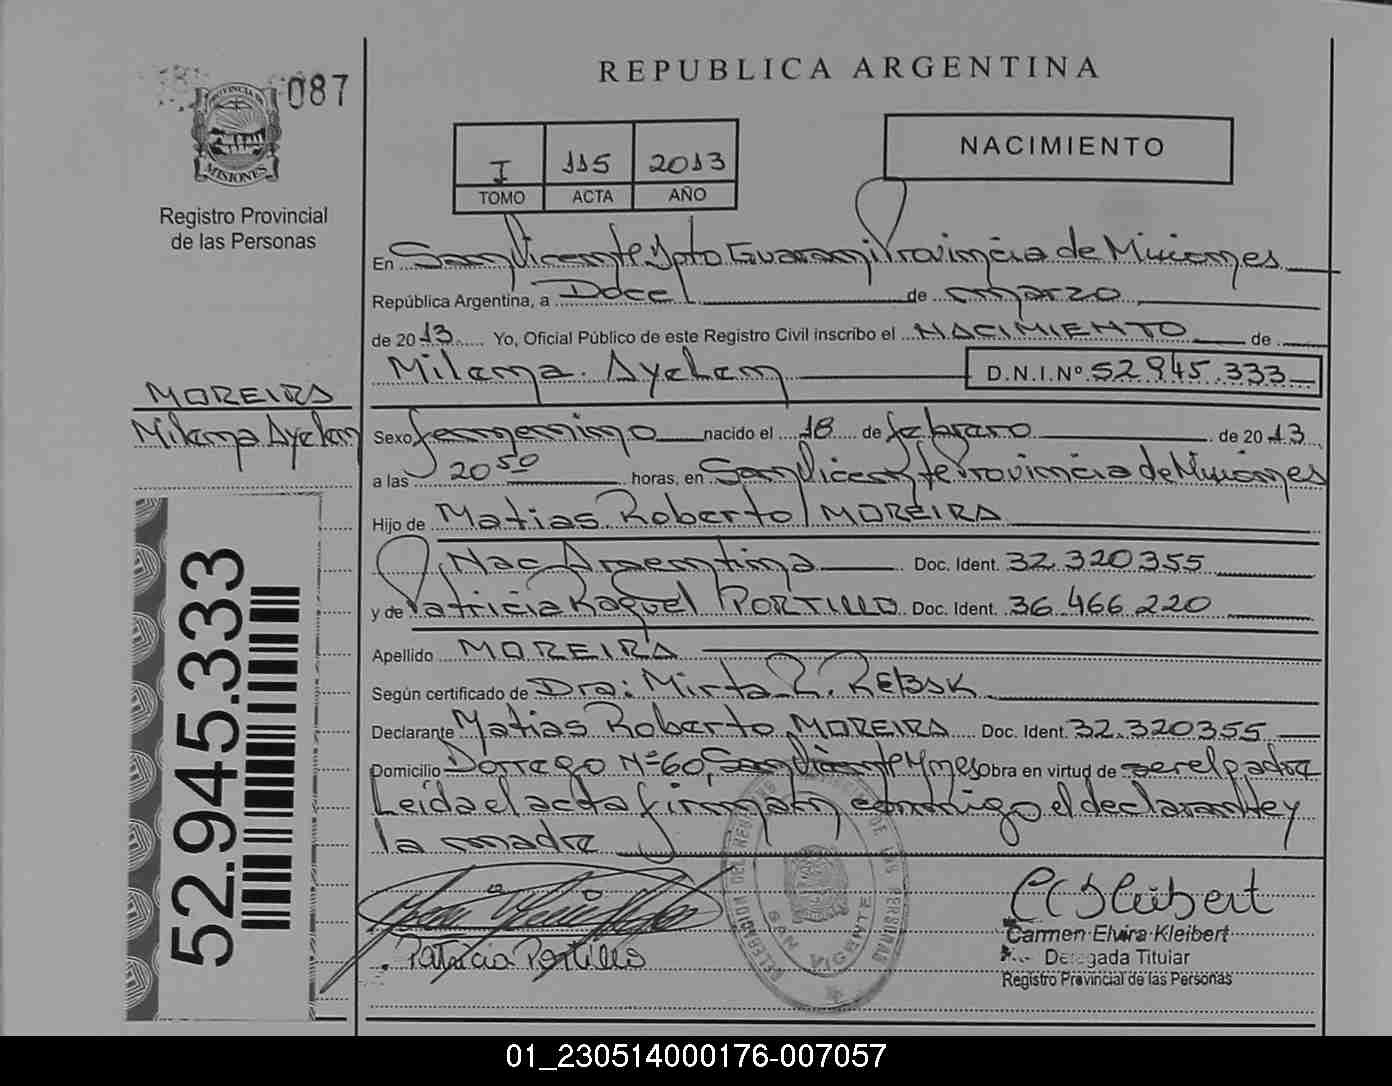 087
PROVINCIA DE
MISIONES
Registro Provincial
de las Personas
REPUBLICA ARGENTINA
I 115 2013
TOMO ACTA AÑO
NACIMIENTO
En San Vicente, Dpto Guarani Provincia de Misiones
República Argentina, a Doce de marzo
de 2013 Yo, Oficial Público de este Registro Civil inscribo el NACIMIENTO de
Milena Ayelen D.N.I.Nº 52 945 333
MOREIRA
Milena Ayelen
Sexo femenino nacido el 18 de febrero de 2013
a las 20 50 horas, en San Vicente Provincia de Misiones
Hijo de Matias Roberto MOREIRA
Nac Argentina Doc. Ident. 32.320355
y de Patricia Raquel PORTILLO Doc. Ident. 36 466 220
Apellido MOREIRA
Según certificado de Dra: Mirta R.
Declarante Matias Roberto MOREIRA Doc. Ident. 32.320355
Domicilio Dorrego Nº 60, San Vicente Mnes obra en virtud de ser el padre
Leida el acta firman conmigo el declarante y
la madre
52.945.333
Patricia Portillo
SAN VICENTE
Carmen Elvira Kleibert
Delegada Titular
Registro Provincial de las Personas
01_230514000176-007057